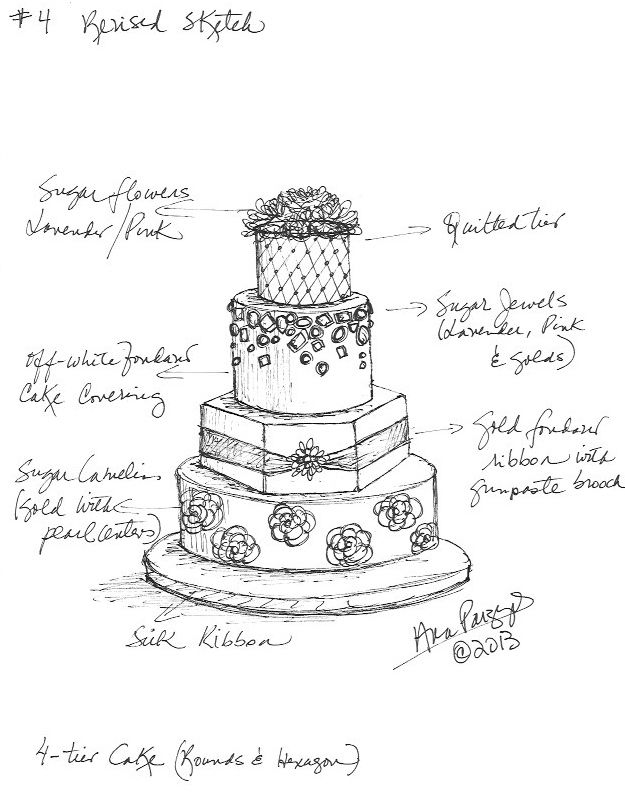 #4 Revised Sketch
Sugar flowers
Lavender/Pink
Quilted tier
Sugar Jewels
(Lavender, Pink
& Golds)
Off-white fondant
Cake Covering
Gold fondant
ribbon with
gumpaste brooch
Sugar Camelias
(Gold with
pearl centers)
Silk Ribbon
Ana Parzych
©2013
4-tier Cake (Rounds & Hexagon)